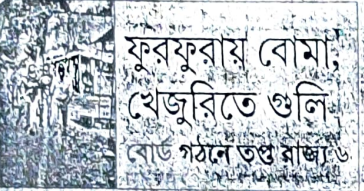 ফুরফুরায় বোমা,
খেজুরিতে গুলি
বোর্ড গঠনে তপ্ত রাজ্য